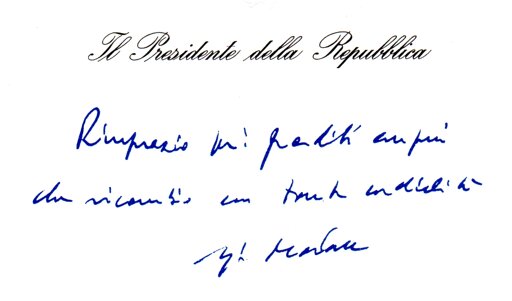 Il Presidente della Repubblica
Ringrazio per i graditi auguri
che ricambio con tanta cordialità